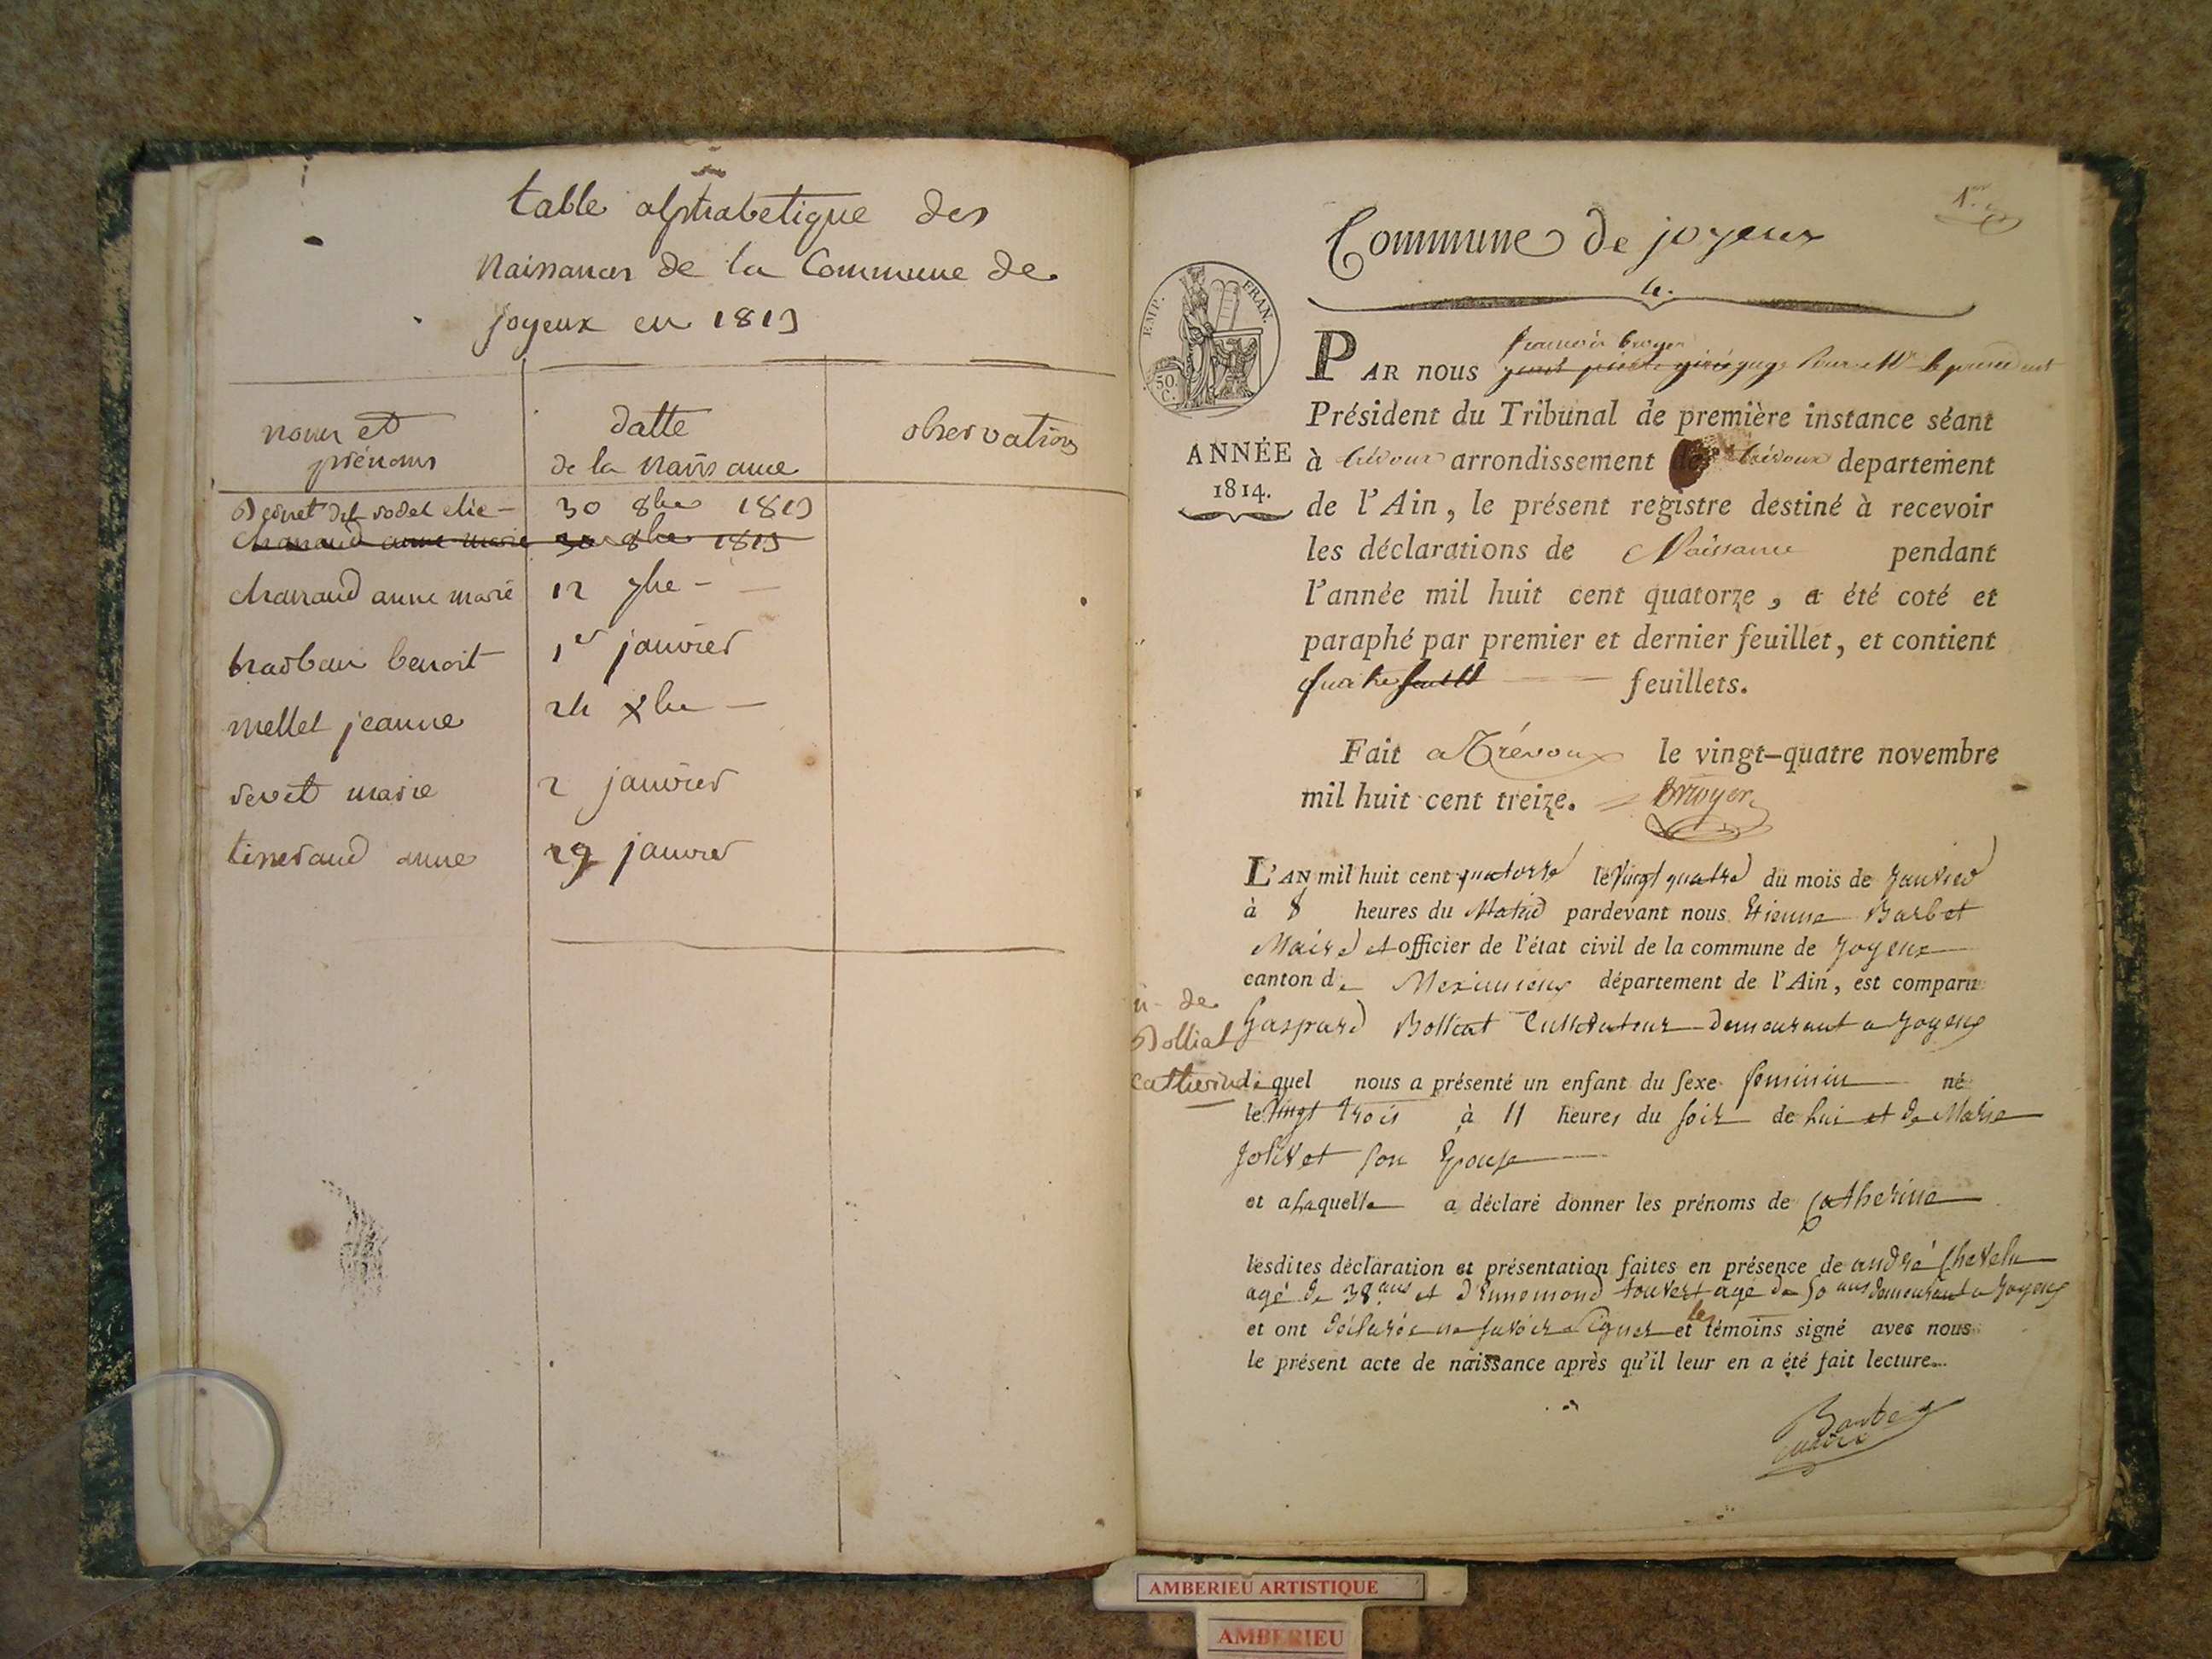 table alphabetique des
Naissances de la Commune de
joyeux en 1813
noms et
prénoms
datte
de la naissance
observations
elie - 30 8bre 1813
chanaud anne marie 30 8bre 1813
chanaud anne marie 12 7bre -
benoit 1er janvier
mellet jeanne 24 xbre -
revet marie 2 janvier
tineraud anne 29 janvier
1er
Commune de joyeux
EMP. FRAN.
50. C.
ANNÉE
1814.
françois bruyer
PAR nous juge pour Mr le president
Président du Tribunal de première instance séant
à trévoux arrondissement de trévoux departement
de l'Ain, le présent registre destiné à recevoir
les déclarations de Naissance pendant
l'année mil huit cent quatorze, a été coté et
paraphé par premier et dernier feuillet, et contient
quatre feuillets.
Fait a Trévoux le vingt-quatre novembre
mil huit cent treize. Bruyer
L'AN mil huit cent quatorze le Vingt quatre du mois de Janvier
à 8 heures du Matin pardevant nous Etienne Barbet
Maire et officier de l'état civil de la commune de Joyeux
canton de Meximieux département de l'Ain, est comparu
Gaspard Bolliat Cultivateur demeurant a Joyeux
n. de
Bolliat
Catherine
lequel nous a présenté un enfant du sexe feminin né
le Vingt trois à 11 heures du soir de lui et de Marie
Jolivet son Epouse
et a laquelle a déclaré donner les prénoms de Catherine
lesdites déclaration et présentation faites en présence de andré Chevelu
agé de 38 ans et d'Ennemond touvert agé de 50 ans demeurant a Joyeux
et ont déclarés ne savoir Signer et les témoins signé avec nous
le présent acte de naissance après qu'il leur en a été fait lecture.
Barbet
maire
AMBERIEU ARTISTIQUE
AMBERIEU